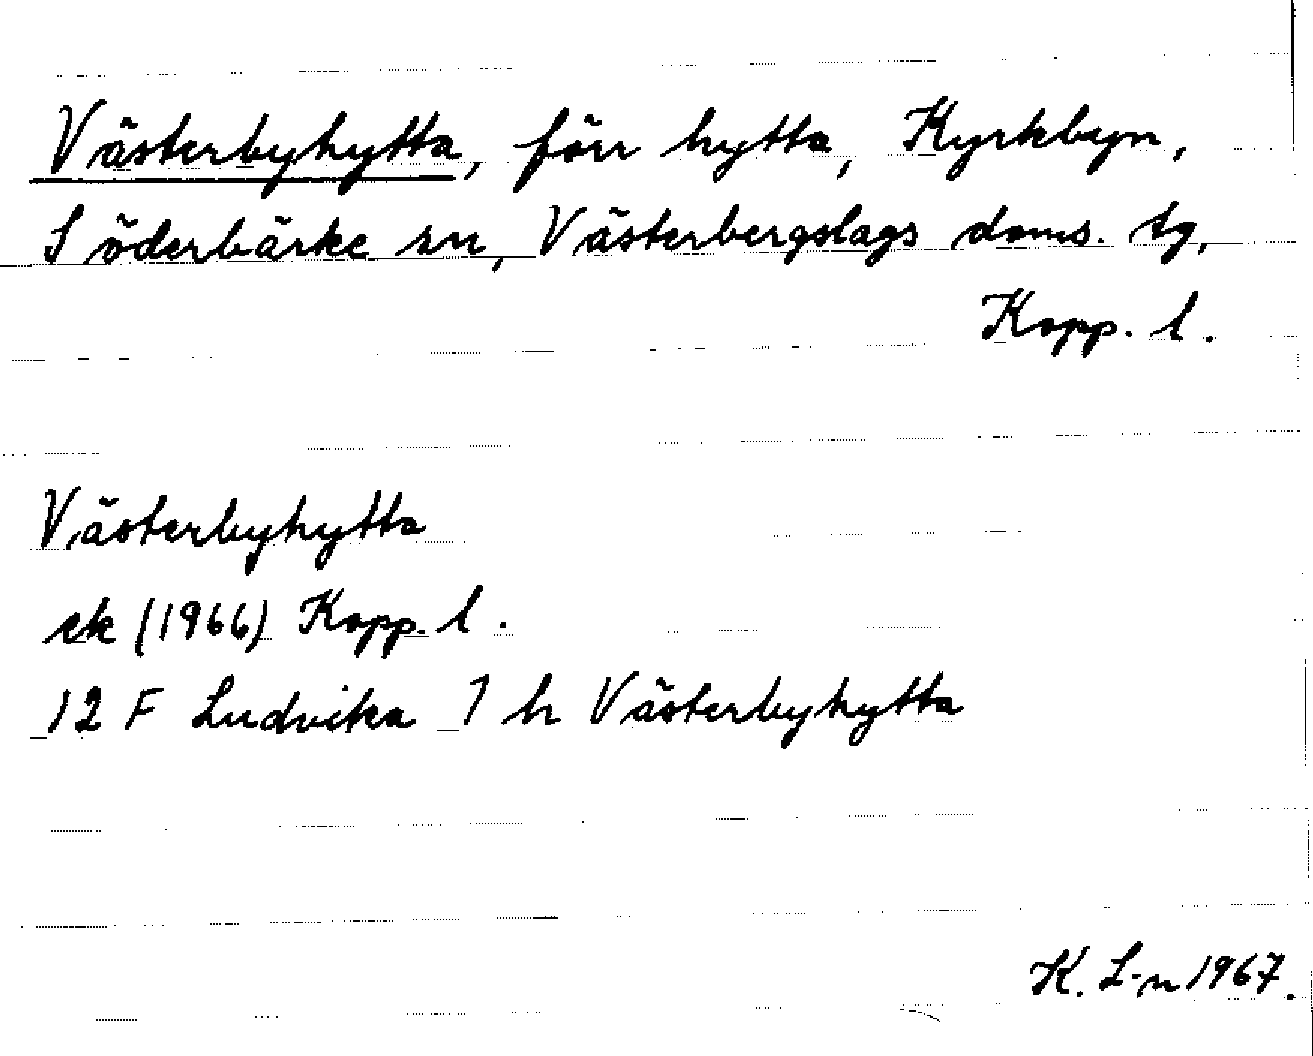 Västerbyhytta, förr hytta, Kyrkbyn,
Söderbärke sn, Västerbergslags doms. tg,
Kopp. l.
Västerbyhytta
ek (1966) Kopp. l.
12 F Ludvika 7 h Västerbyhytta
K. L-n 1967.